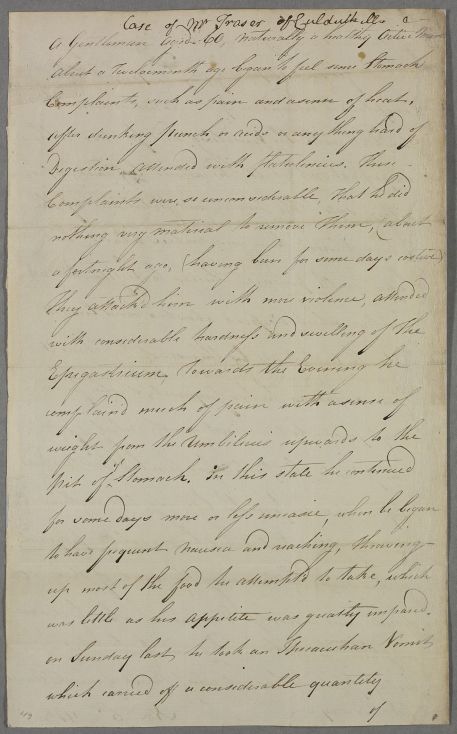 Case of Mr Fraser of Culduthell
a Gentleman aged 60, naturally a healthy Active Man
about a Twelvemonth ago began to feel some Stomach
Complaints, such as pain and a sense of heat,
after drinking punch or acids or any thing hard of
Digestion, attended with flatulencies. These
Complaints were so inconsiderable, that he did
nothing very material to remove them, about
a fortnight ago, (having been for some days costive)
they attack'd him with more violence, attended
with considerable hardness and swelling of the
Epigastrium. Towards the Evening he
complain'd much of pain with a sense of
weight from the Umbilicus upwards to the
pit of ye Stomach. in this state he continued
for some days more or less uneasie, when he began
to have frequent nausea and reaching, throwing
up most of the food he attempt'd to take, which
was little as his appetite was greatly impared.
on Sunday last he took an Vomit
which carried off a considerable quantity
of